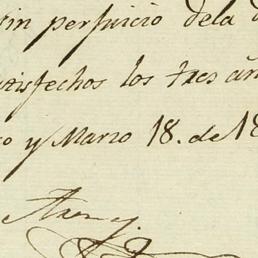 sin perjuicio dela
satisfechos los tres añ
o y Marzo 18. de 18